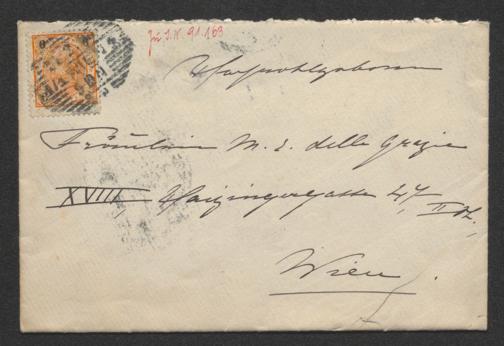 Zu I.N. 91.163
Hochwohlgeboren
Fräulein M. E. delle Grazie
XVIII, Haizingergasse 47,
II St.,
Wien.